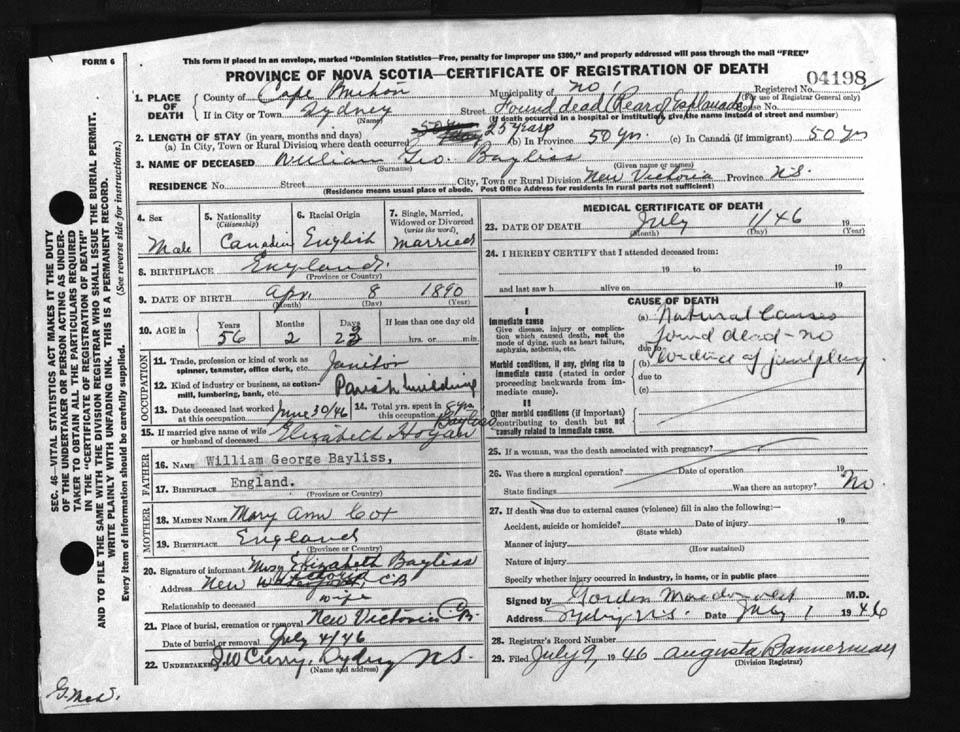 FORM 6
This form if placed in an envelope, marked "Dominion Statistics—Free, penalty for improper use $300," and properly addressed will pass through the mail "FREE"
PROVINCE OF NOVA SCOTIA—CERTIFICATE OF REGISTRATION OF DEATH
04198
Registered No.
(For use of Registrar General only)
1. PLACE OF DEATH
County of Cape Breton Municipality of no
If in City or Town Sydney Street Found dead (Rear of Esplanade House No.
(Name) (If death occurred in a hospital or institution, give the name instead of street and number)
2. LENGTH OF STAY (in years, months and days)
(a) In City, Town or Rural Division where death occurred 25 years (b) In Province 50 yrs. (c) In Canada (if immigrant) 50 yrs
3. NAME OF DECEASED William Geo. Bayliss
(Surname) (Given name or names)
RESIDENCE No. Street City, Town or Rural Division New Victoria Province N.S.
(Residence means usual place of abode. Post Office Address for residents in rural parts not sufficient)
SEC. 46—VITAL STATISTICS ACT MAKES IT THE DUTY
OF THE UNDERTAKER OR PERSON ACTING AS UNDER-
TAKER TO OBTAIN ALL THE PARTICULARS REQUIRED
IN THE "CERTIFICATE OF REGISTRATION OF DEATH"
AND TO FILE THE SAME WITH THE DIVISION REGISTRAR WHO SHALL ISSUE THE BURIAL PERMIT.
WRITE PLAINLY WITH UNFADING INK. THIS IS A PERMANENT RECORD.
Every item of information should be carefully supplied. (See reverse side for instructions.)
4. Sex
Male
5. Nationality
(Citizenship)
Canadian
6. Racial Origin
English
7. Single, Married,
Widowed or Divorced
(write the word)
Married
8. BIRTHPLACE England.
(Province or Country)
9. DATE OF BIRTH Apr. 8 1890
(Month) (Day) (Year)
10. AGE in Years Months Days If less than one day old
56 2 23 hrs. or min.
OCCUPATION
11. Trade, profession or kind of work as
spinner, teamster, office clerk, etc. Janitor
12. Kind of industry or business, as cotton-
mill, lumbering, bank, etc. Parish building
13. Date deceased last worked
at this occupation June 30/46
14. Total yrs. spent in
this occupation 8 yrs
15. If married give name of wife
or husband of deceased Elizabeth Hogan Bayliss
FATHER
16. NAME William George Bayliss,
17. BIRTHPLACE England.
(Province or Country)
MOTHER
18. MAIDEN NAME Mary Ann Cox
19. BIRTHPLACE England
(Province or Country)
20. Signature of informant Mrs Elizabeth Bayliss
Address New C.B
Relationship to deceased wife
21. Place of burial, cremation or removal New Victoria C.B.
Date of burial or removal July 4/46
22. UNDERTAKER J.W Curry, Sydney N.S.
(Name and address)
MEDICAL CERTIFICATE OF DEATH
23. DATE OF DEATH July 1/46 19
(Month) (Day) (Year)
24. I HEREBY CERTIFY that I attended deceased from:
19 to 19
and last saw h alive on 19
CAUSE OF DEATH
I
Immediate cause
Give disease, injury or complica-
tion which caused death, not the
mode of dying, such as heart failure,
asphyxia, asthenia, etc.
Morbid conditions, if any, giving rise to
immediate cause (stated in order
proceeding backwards from im-
mediate cause).
II
Other morbid conditions (if important)
contributing to death but not
causally related to immediate cause.
(a) Natural Causes
found dead – no
due to
(b) evidence of foul play
due to
(c)
25. If a woman, was the death associated with pregnancy?
26. Was there a surgical operation? Date of operation 19
State findings Was there an autopsy? No.
27. If death was due to external causes (violence) fill in also the following:—
Accident, suicide or homicide? Date of injury 19
(State which)
Manner of injury
(How sustained)
Nature of injury
Specify whether injury occurred in industry, in home, or in public place
Signed by Gordon M.D.
Address Sydney N.S. Date July 1 1946
28. Registrar's Record Number
29. Filed July 9, 1946 Augusta Bannerman
(Division Registrar)